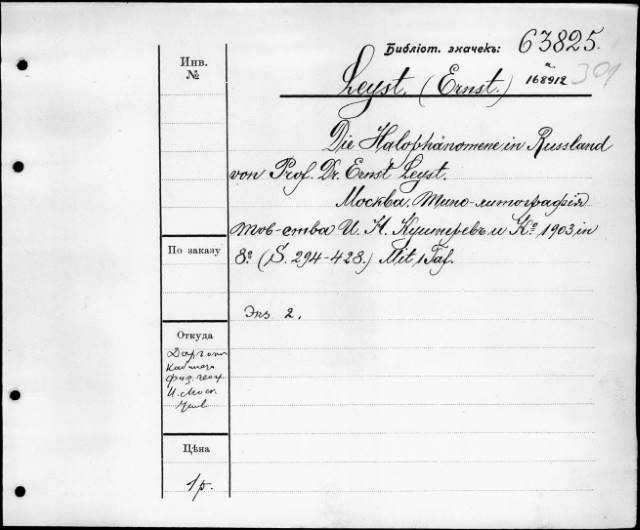 Библіот. значекъ: 63825.
и
168912
301
Инв.
№
Leyst. (Ernst.)
Die Halophänomene in Russland
von Prof. Dr. Ernst Leyst.
Москва. Типо-литографія
Тов-ства И. Н. Кушнеревъ и Кº 1903 in
8º. (S. 294-428.) Mit 1 Taf.
По заказу
Экз 2.
Откуда
Кабинета
физ. геогр
И. Моск.
Унив
Цѣна
1 р.